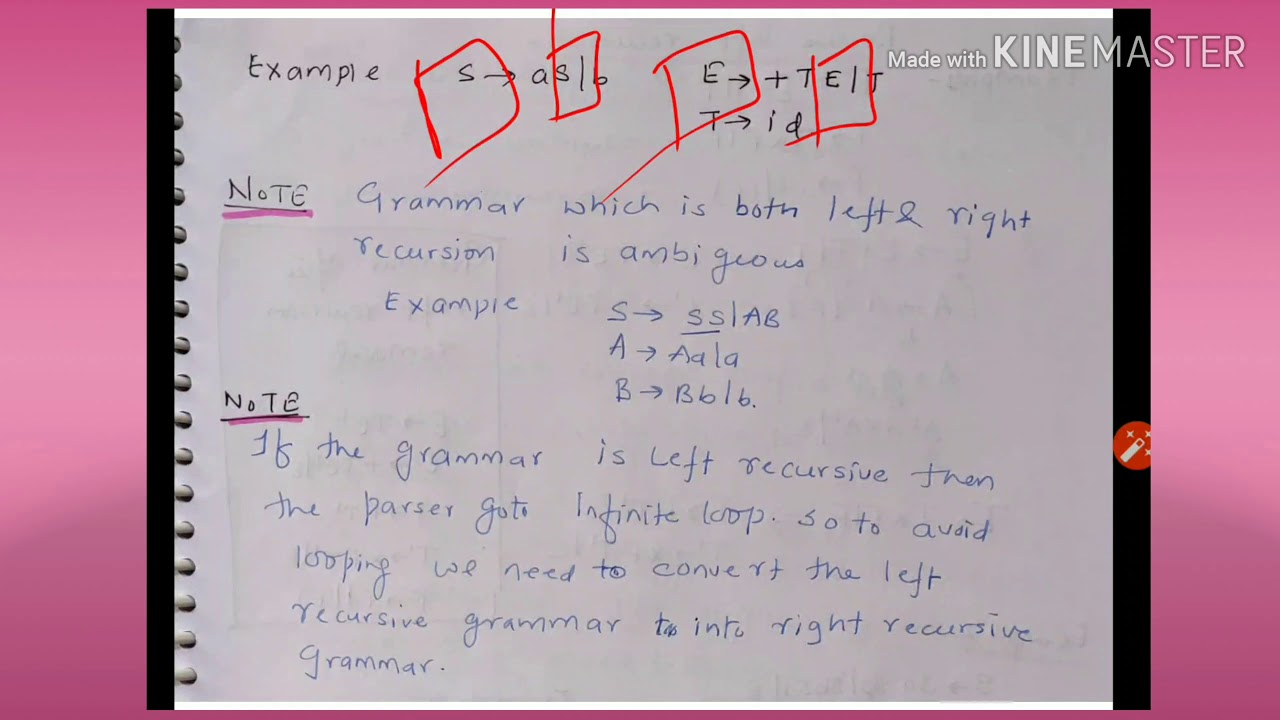 Made with KINEMASTER
Example S → aS|b E → +TE|T
T → id
NOTE Grammar which is both left & right
recursion is ambigeous
Example S → SS|AB
A → Aa|a
B → Bb|b.
NOTE
If the grammar is Left recursive then
the parser goto infinite loop. so to avoid
looping we need to convert the left
recursive grammar into right recursive
Grammar.